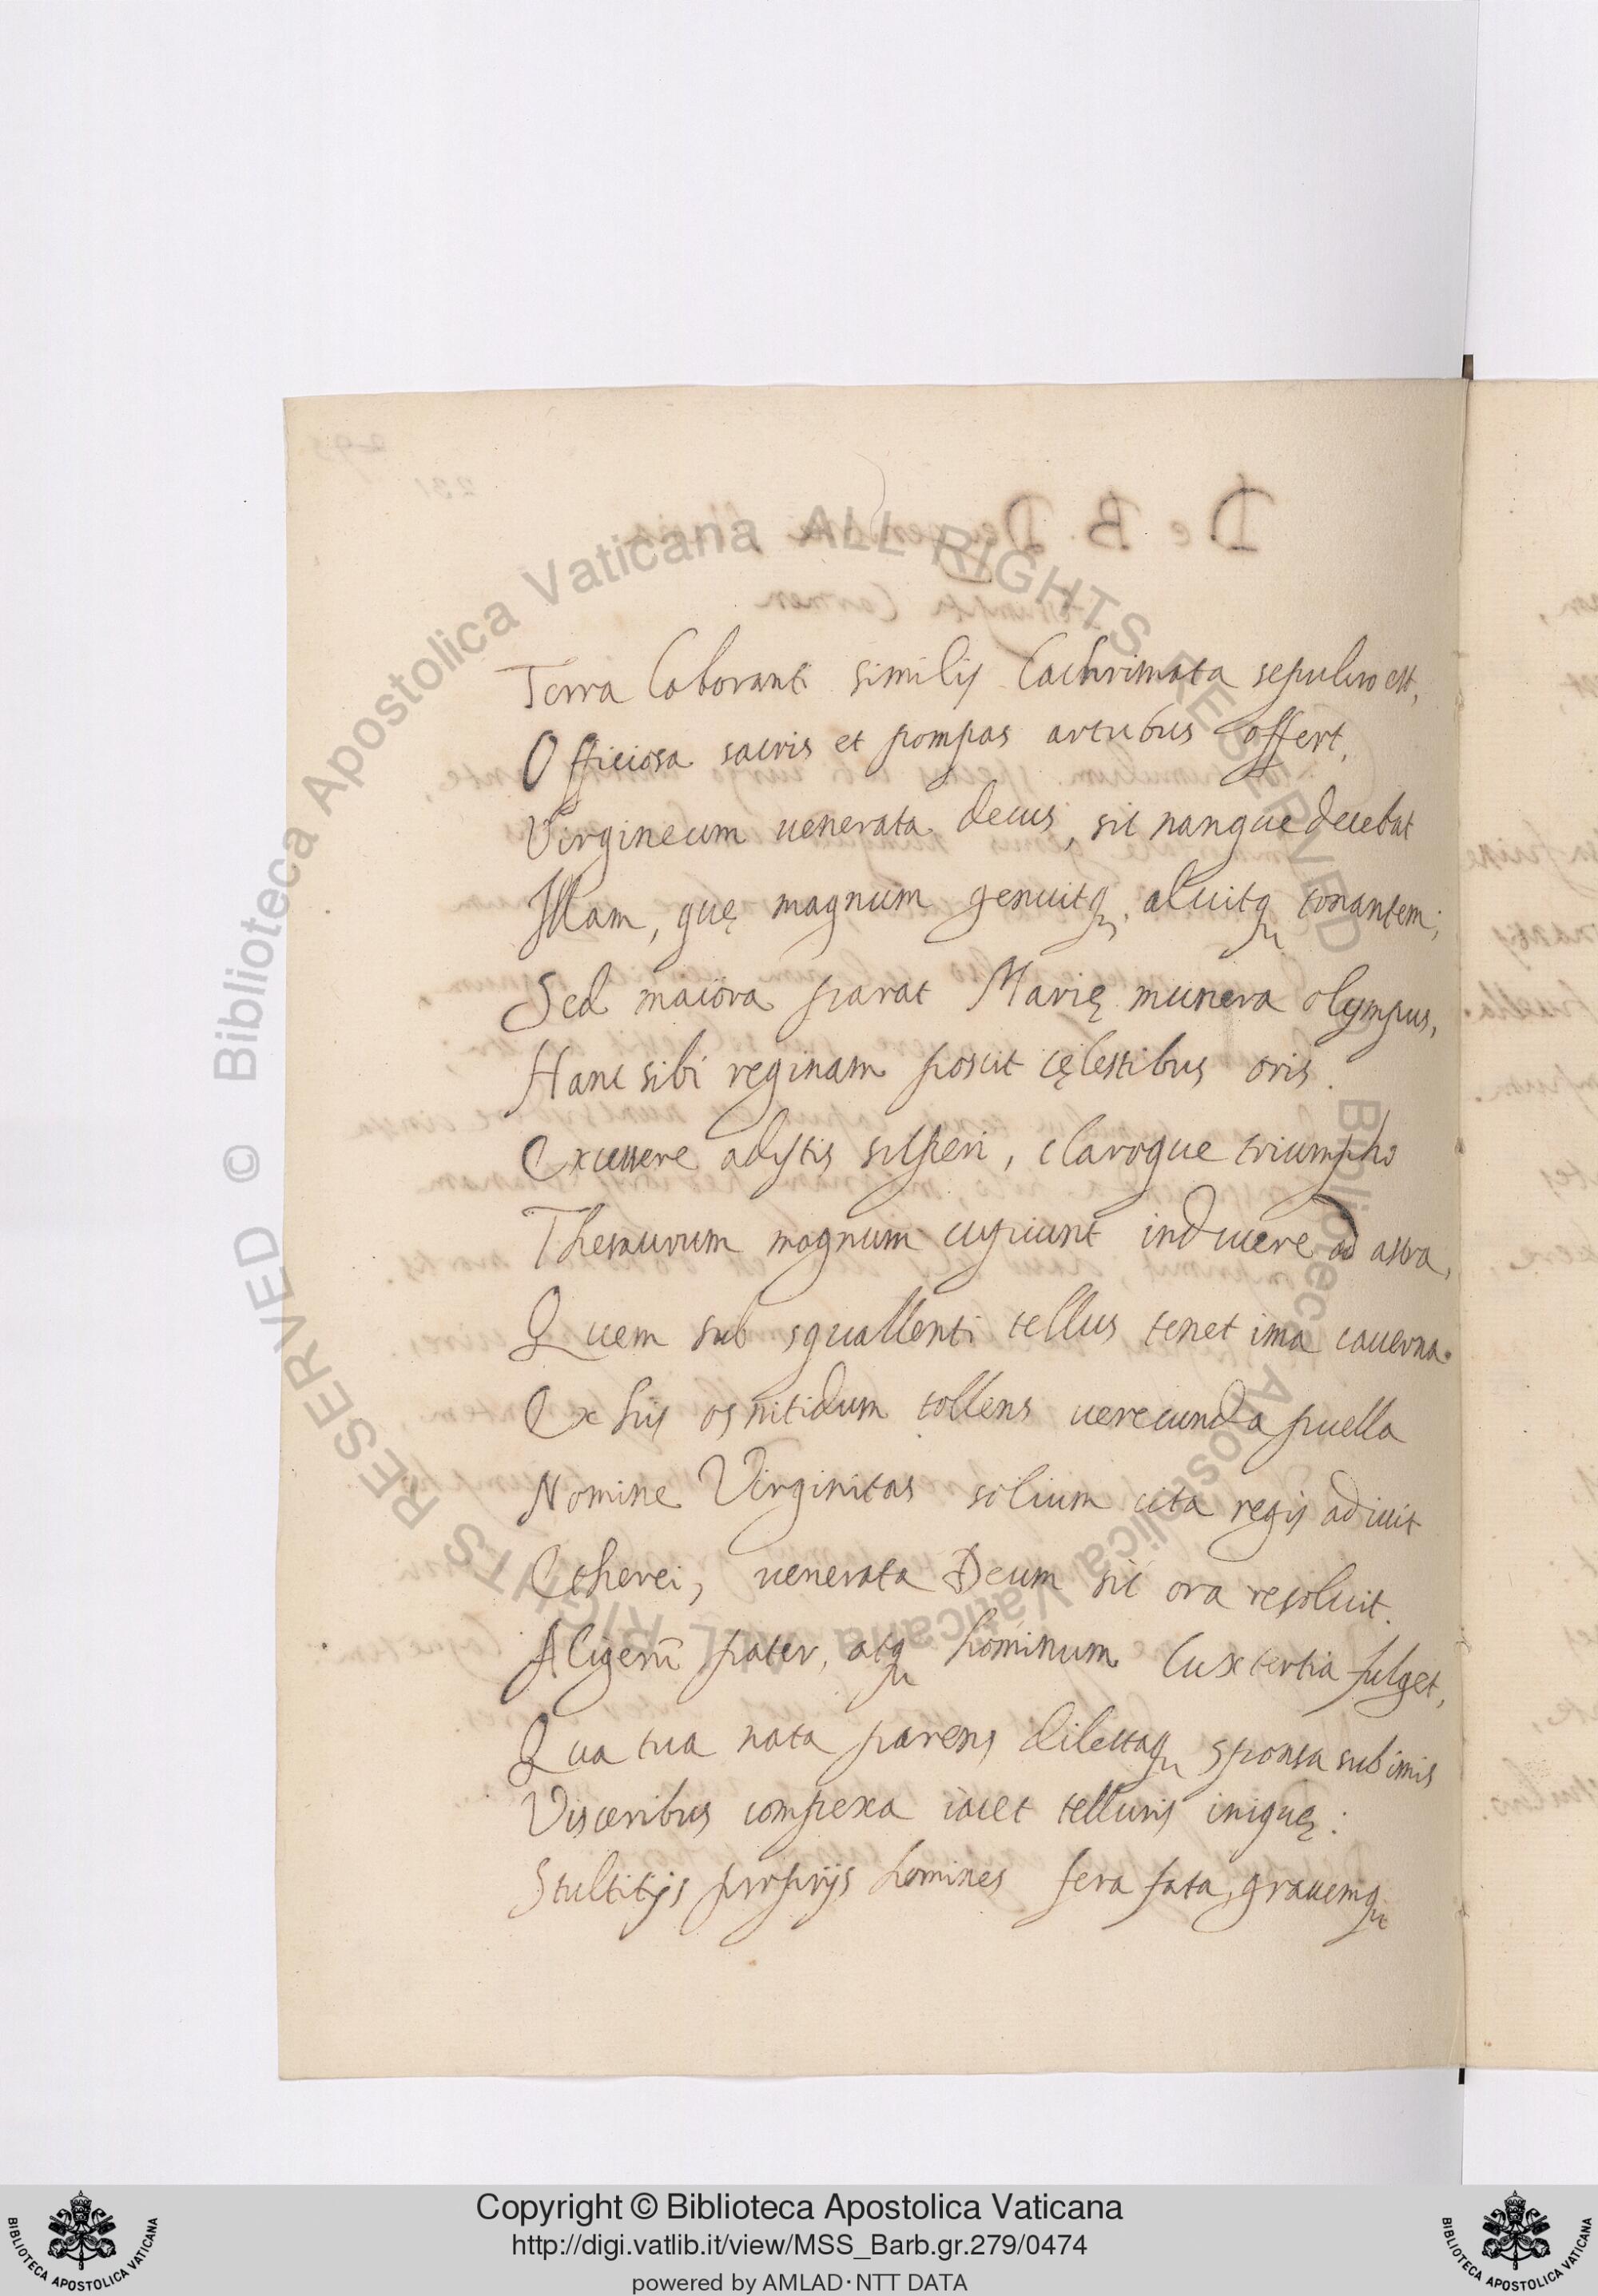 Terra laboranti similis lachrimata sepulcro est,
Officiosa sacris et pompas artubus offert,
Virgineum uenerata decus, sic nanque decebat
Illam, quę magnum genuitq;, aluitq; tonantem;
Sed maiora parat Marię munera olympus,
Hanc sibi reginam poscit cęlestibus oris.
Excussere adytis superi, claroque triumpho
Thesaurum magnum cupiunt inducere ad astra,
Quem sub squallenti tellus tenet ima cauerna.
Ex his os nitidum tollens uerecunda puella
Nomine Virginitas solium cita regis adiuit
Etherei, uenerata Deum sic ora resoluit.
Aligerũ pater, atq; hominum lux tertia fulget,
Qua tua nata parens dilectaq; sponsa sub imis
Visceribus compexa iacet telluris iniquę:
Stultitijs proprijs homines fera fata, grauemq;
Copyright © Biblioteca Apostolica Vaticana
http://digi.vatlib.it/view/MSS_Barb.gr.279/0474
powered by AMLAD·NTT DATA
BIBLIOTECA APOSTOLICA VATICANA
BIBLIOTECA APOSTOLICA VATICANA
© Biblioteca Apostolica Vaticana ALL RIGHTS RESERVED
Biblioteca Apostolica Vaticana ALL RIGHTS RESERVED